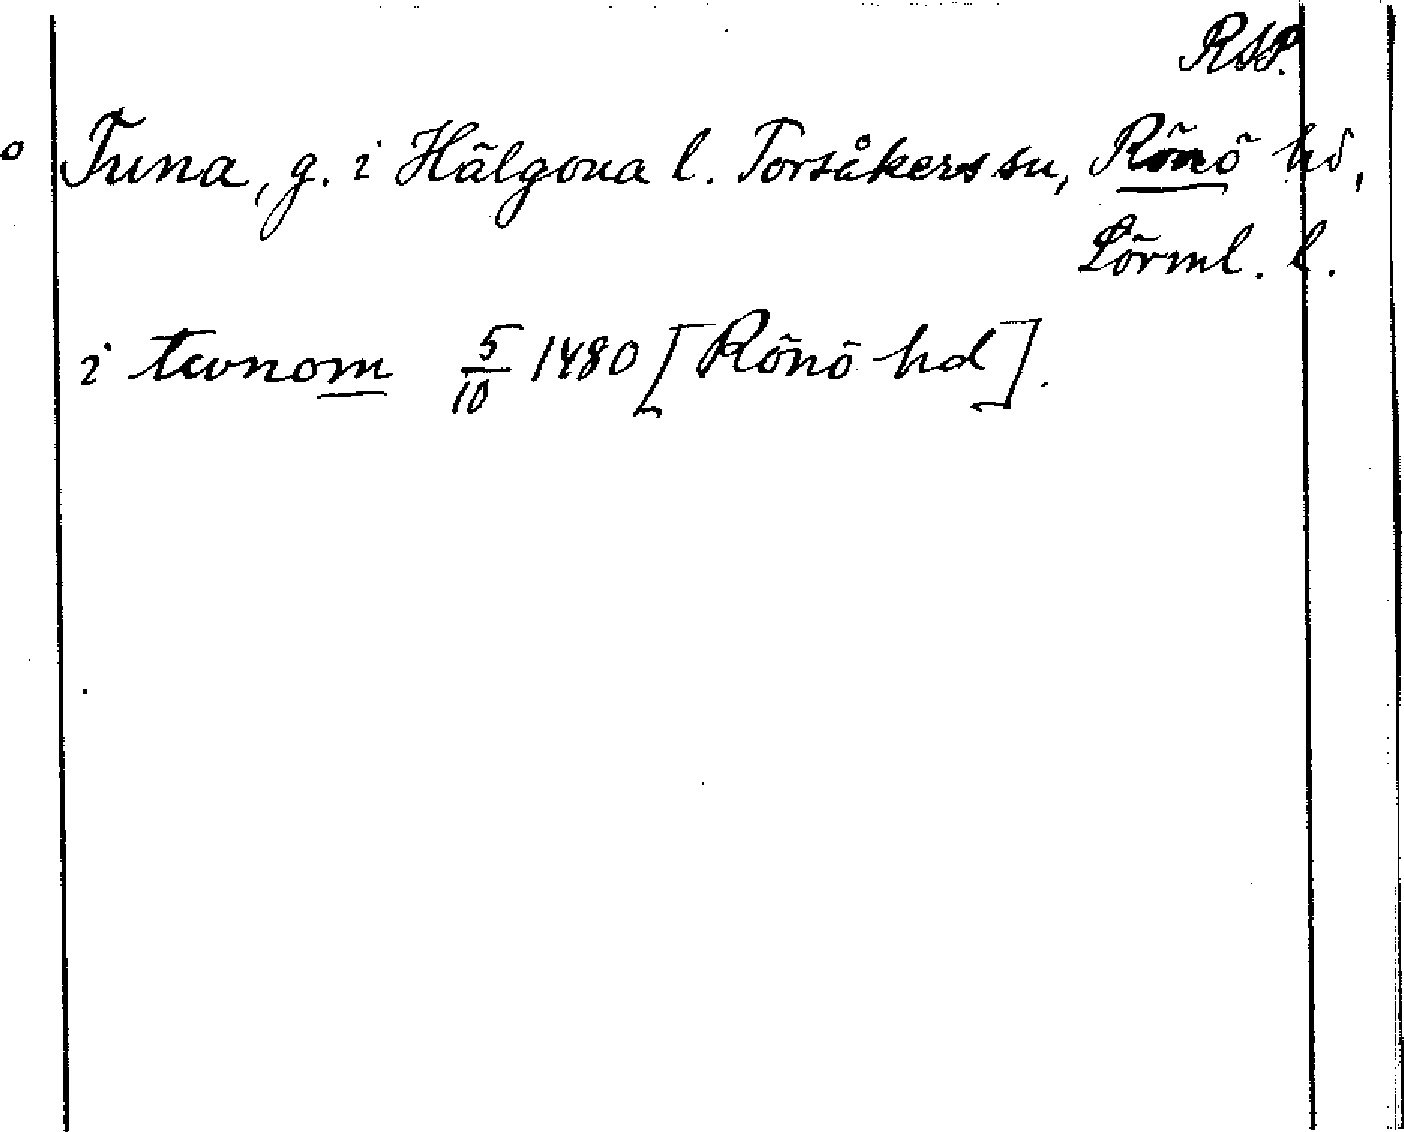 RAP.
Tuna, g. i Hälgona l. Torsåkers sn, Rönö hd,
Sörml. l.
i twnom 5/10 1480 [Rönö hd].